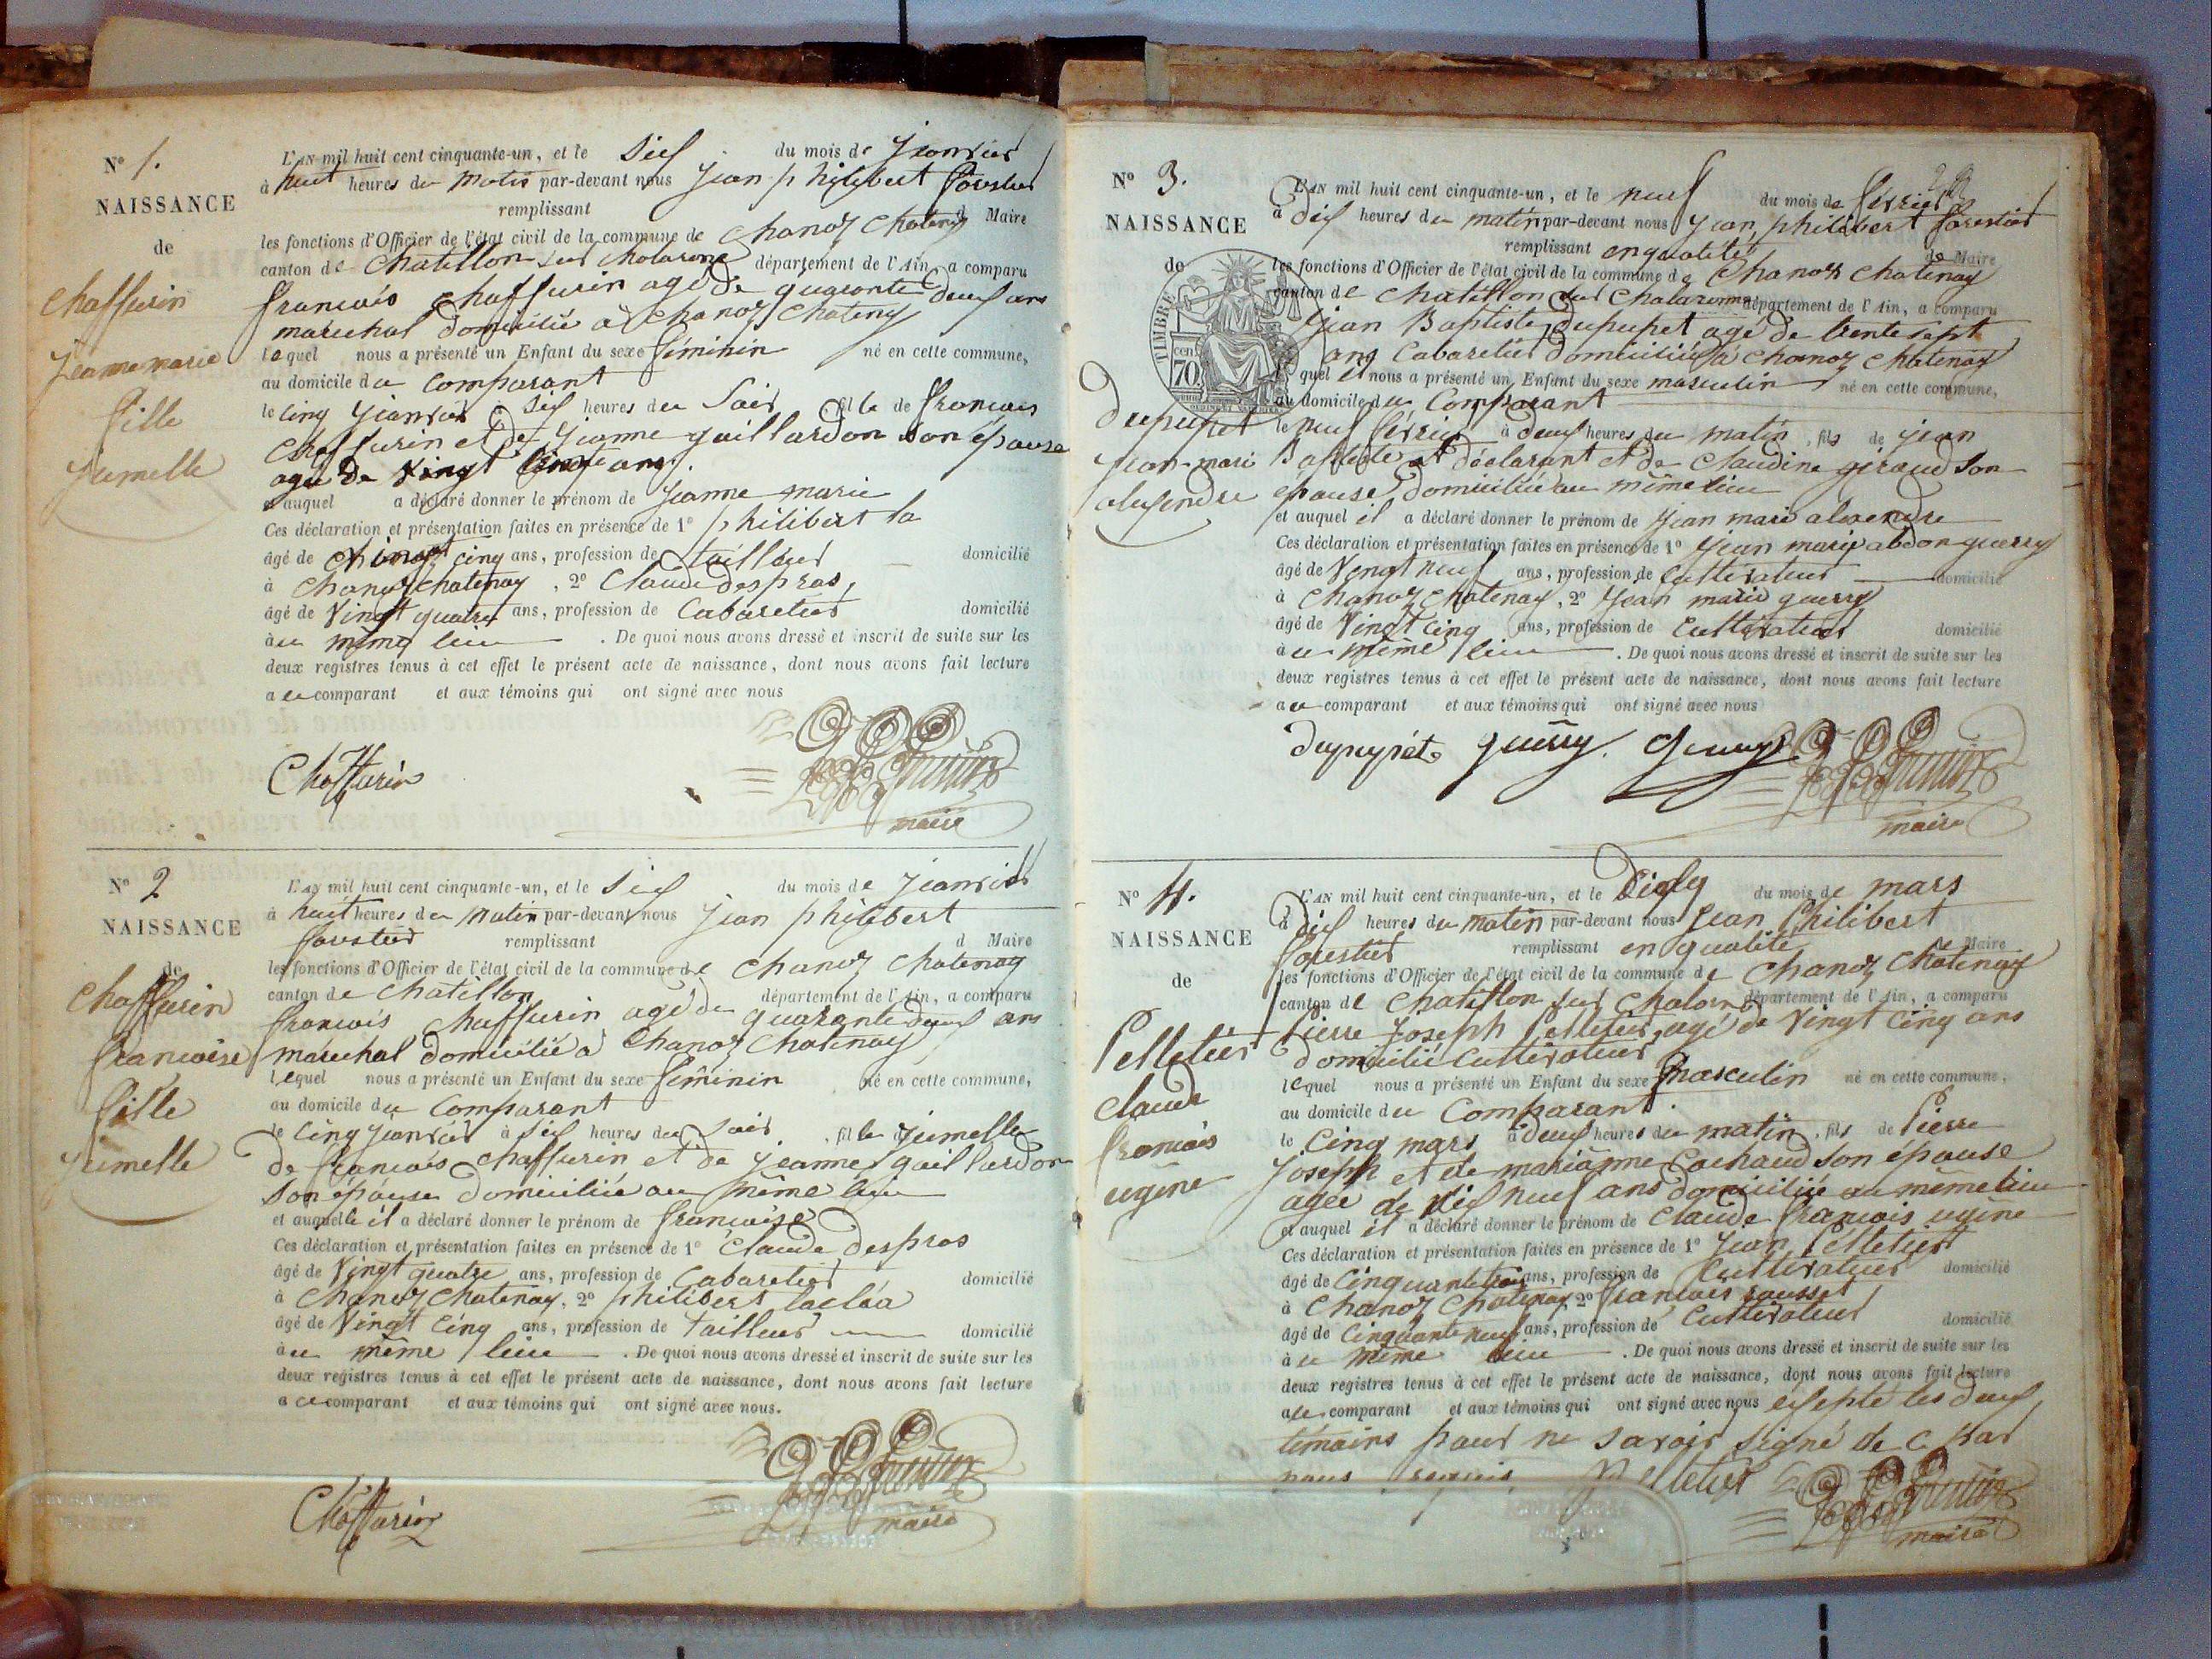 N° 1.
NAISSANCE
de
Chaffurin
Jeanne marie
fille
jumelle
L'AN mil huit cent cinquante-un, et le Six du mois de Jeanvier
à huit heures du matin par-devant nous Jean philibert forestier
remplissant d Maire
les fonctions d'Officier de l'état civil de la commune de Chanoz Chatenay
canton de Chatillon sur Chalaronne département de l'Ain, a comparu
francois Chaffurin agé de quaronte deux ans
maréchal domicilié a Chanoz Chatenay
lequel nous a présenté un Enfant du sexe féminin né en cette commune,
au domicile du Comparant
le cinq Jeanvier à six heures du Soir fille de francois
Chaffurin et de Jeanne gaillardon son épouse
agée de vingt ans.
auquel a déclaré donner le prénom de Jeanne marie
Ces déclaration et présentation faites en présence de 1° philibert la
âgé de vingt cinq ans, profession de tailleur domicilié
à Chanoz Chatenay, 2° Claude despras,
âgé de Vingt quatre ans, profession de Cabaretier domicilié
àu même lieu . De quoi nous avons dressé et inscrit de suite sur les
deux registres tenus à cet effet le présent acte de naissance, dont nous avons fait lecture
au comparant et aux témoins qui ont signé avec nous
Chaffurin
maire
N° 2
NAISSANCE
de
Chaffurin
francoise
fille
jumelle
L'AN mil huit cent cinquante-un, et le Six du mois de Jeanvier
à huit heures du matin par-devant nous Jean philibert
forestier remplissant d Maire
les fonctions d'Officier de l'état civil de la commune de Chanoz Chatenay
canton de Chatillon département de l'Ain, a comparu
francois Chaffurin agé de quarante deux ans
maréchal domicilié a Chanoz Chatenay
lequel nous a présenté un Enfant du sexe féminin né en cette commune,
au domicile du Comparant
le Cinq Jeanvier à six heures du Soir, fille jumelle
de francois Chaffurin et de Jeanne gaillardon
son épouse domiciliée au même lieu
et auquelle il a déclaré donner le prénom de francoise
Ces déclaration et présentation faites en présence de 1° Claude despras
âgé de Vingt quatre ans, profession de Cabaretier domicilié
à Chanoz Chatenay, 2° philibert
âgé de Vingt Cinq ans, profession de tailleur domicilié
àu même lieu . De quoi nous avons dressé et inscrit de suite sur les
deux registres tenus à cet effet le présent acte de naissance, dont nous avons fait lecture
au comparant et aux témoins qui ont signé avec nous.
Chaffurin
maire
N° 3.
NAISSANCE
de
TIMBRE
cen.
70
dupupet
jean-mari
alexendre
L'AN mil huit cent cinquante-un, et le neuf du mois de février
à dix heures du matin par-devant nous Jean philibert forestier
remplissant en qualité de Maire
les fonctions d'Officier de l'état civil de la commune de Chanoz Chatenay
canton de Chatillon sur Chalaronne département de l'Ain, a comparu
Jean Baptiste dupupet agé de trente sept
ans Cabaretier domicilié a Chanoz Chatenay
quel il nous a présenté un Enfant du sexe masculin né en cette commune,
au domicile du Comparant
le neuf février à deux heures du matin, fils de jean
Baptiste et déclarant et de Claudine giraud son
épouse, domiciliée au même lieu
et auquel il a déclaré donner le prénom de Jean mari alexendre
Ces déclaration et présentation faites en présence de 1° Jean marie abdon guerry
âgé de Vingt neuf ans, profession de Cultivateur domicilié
à Chanoz Chatenay, 2° Jean marie guerry
âgé de Vingt cinq ans, profession de Cultivateur domicilié
àu même lieu . De quoi nous avons dressé et inscrit de suite sur les
deux registres tenus à cet effet le présent acte de naissance, dont nous avons fait lecture
au comparant et aux témoins qui ont signé avec nous
guerry.
maire
N° 4.
NAISSANCE
de
Pelletier
Claude
francois
ugine
L'AN mil huit cent cinquante-un, et le du mois de mars
à dix heures du matin par-devant nous Jean Philibert
forestier remplissant en qualité de Maire
les fonctions d'Officier de l'état civil de la commune de Chanoz Chatenay
canton de Chatillon sur département de l'Ain, a comparu
Pierre Joseph Pelletier, agé de Vingt cinq ans
domicilié Cultivateur
lequel nous a présenté un Enfant du sexe masculin né en cette commune,
au domicile du Comparant.
le Cinq mars à deux heures du matin, fils de Pierre
Joseph et de marianne Cochaud son épouse
agée de dix neuf ans domiciliée au même lieu
et auquel il a déclaré donner le prénom de Claude francois ugine
Ces déclaration et présentation faites en présence de 1° Jean Pelletier
âgé de Cinquante trois ans, profession de Cultivateur domicilié
à Chanoz Chatenay, 2° francois rousset
âgé de Cinquante neuf ans, profession de Cultivateur domicilié
àu même lieu . De quoi nous avons dressé et inscrit de suite sur les
deux registres tenus à cet effet le présent acte de naissance, dont nous avons fait lecture
au comparant et aux témoins qui ont signé avec nous exsepté les deux
témoins pour ne savoir signé de c par
nous requis. Pelletier
maire